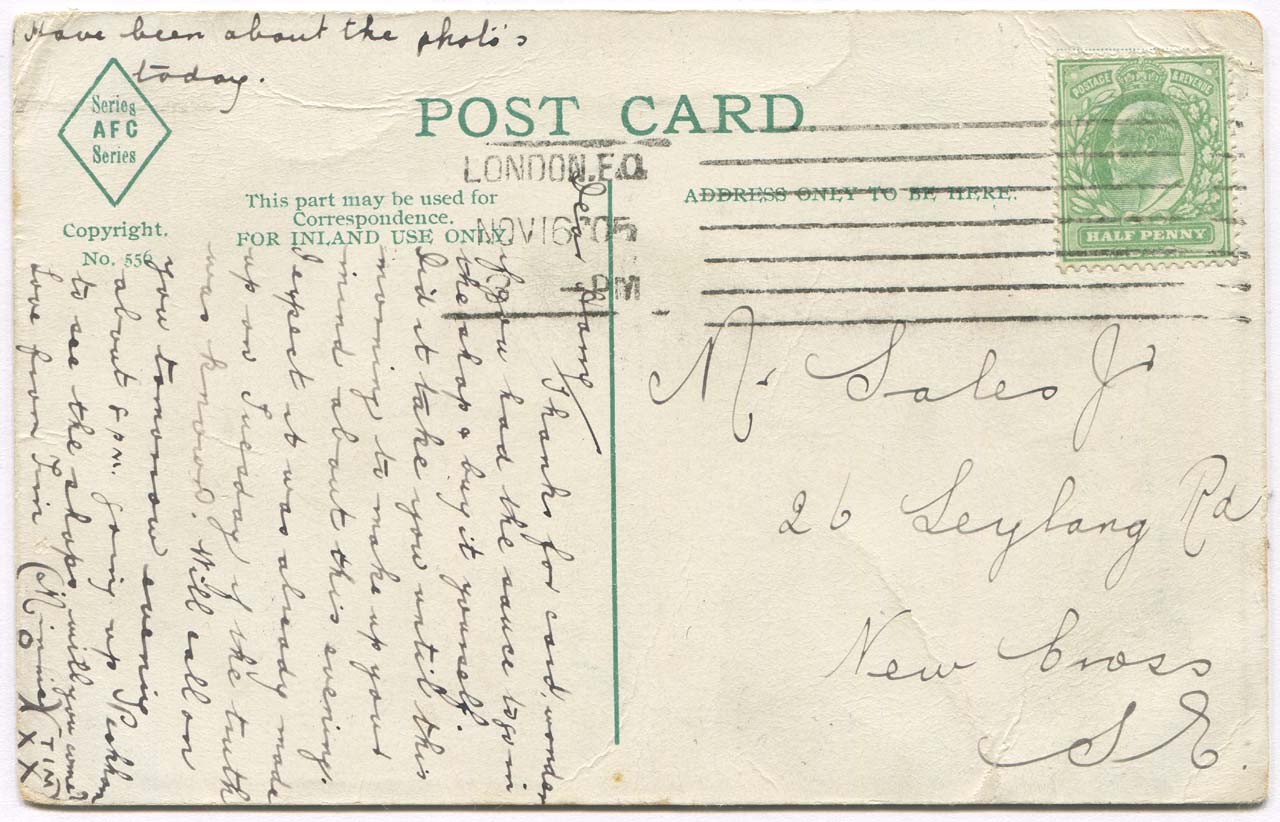 Have been about the photo's
today.
Series
AFC
Series
Copyright.
No. 556
POST CARD
This part may be used for
Correspondence.
FOR INLAND USE ONLY.
ADDRESS ONLY TO BE HERE.
LONDON.E.C
NOV 16 05
PM
POSTAGE & REVENUE
HALF PENNY
Mr Sales Jr
26 Leylang Rd
New Cross
S E.
Dear
Thanks for card, wonder
you had the sauce to go in
the shop & buy it yourself.
Did it take you until this
morning to make up your
mind about this evening.
I expect it was already made
up on Tuesday if the truth
was known. Will call on
you tomorrow evening
about 8 PM. going up Peckham
to see the shops, will you come?
Love from Tim (Minnie) (TIM)
O X X X